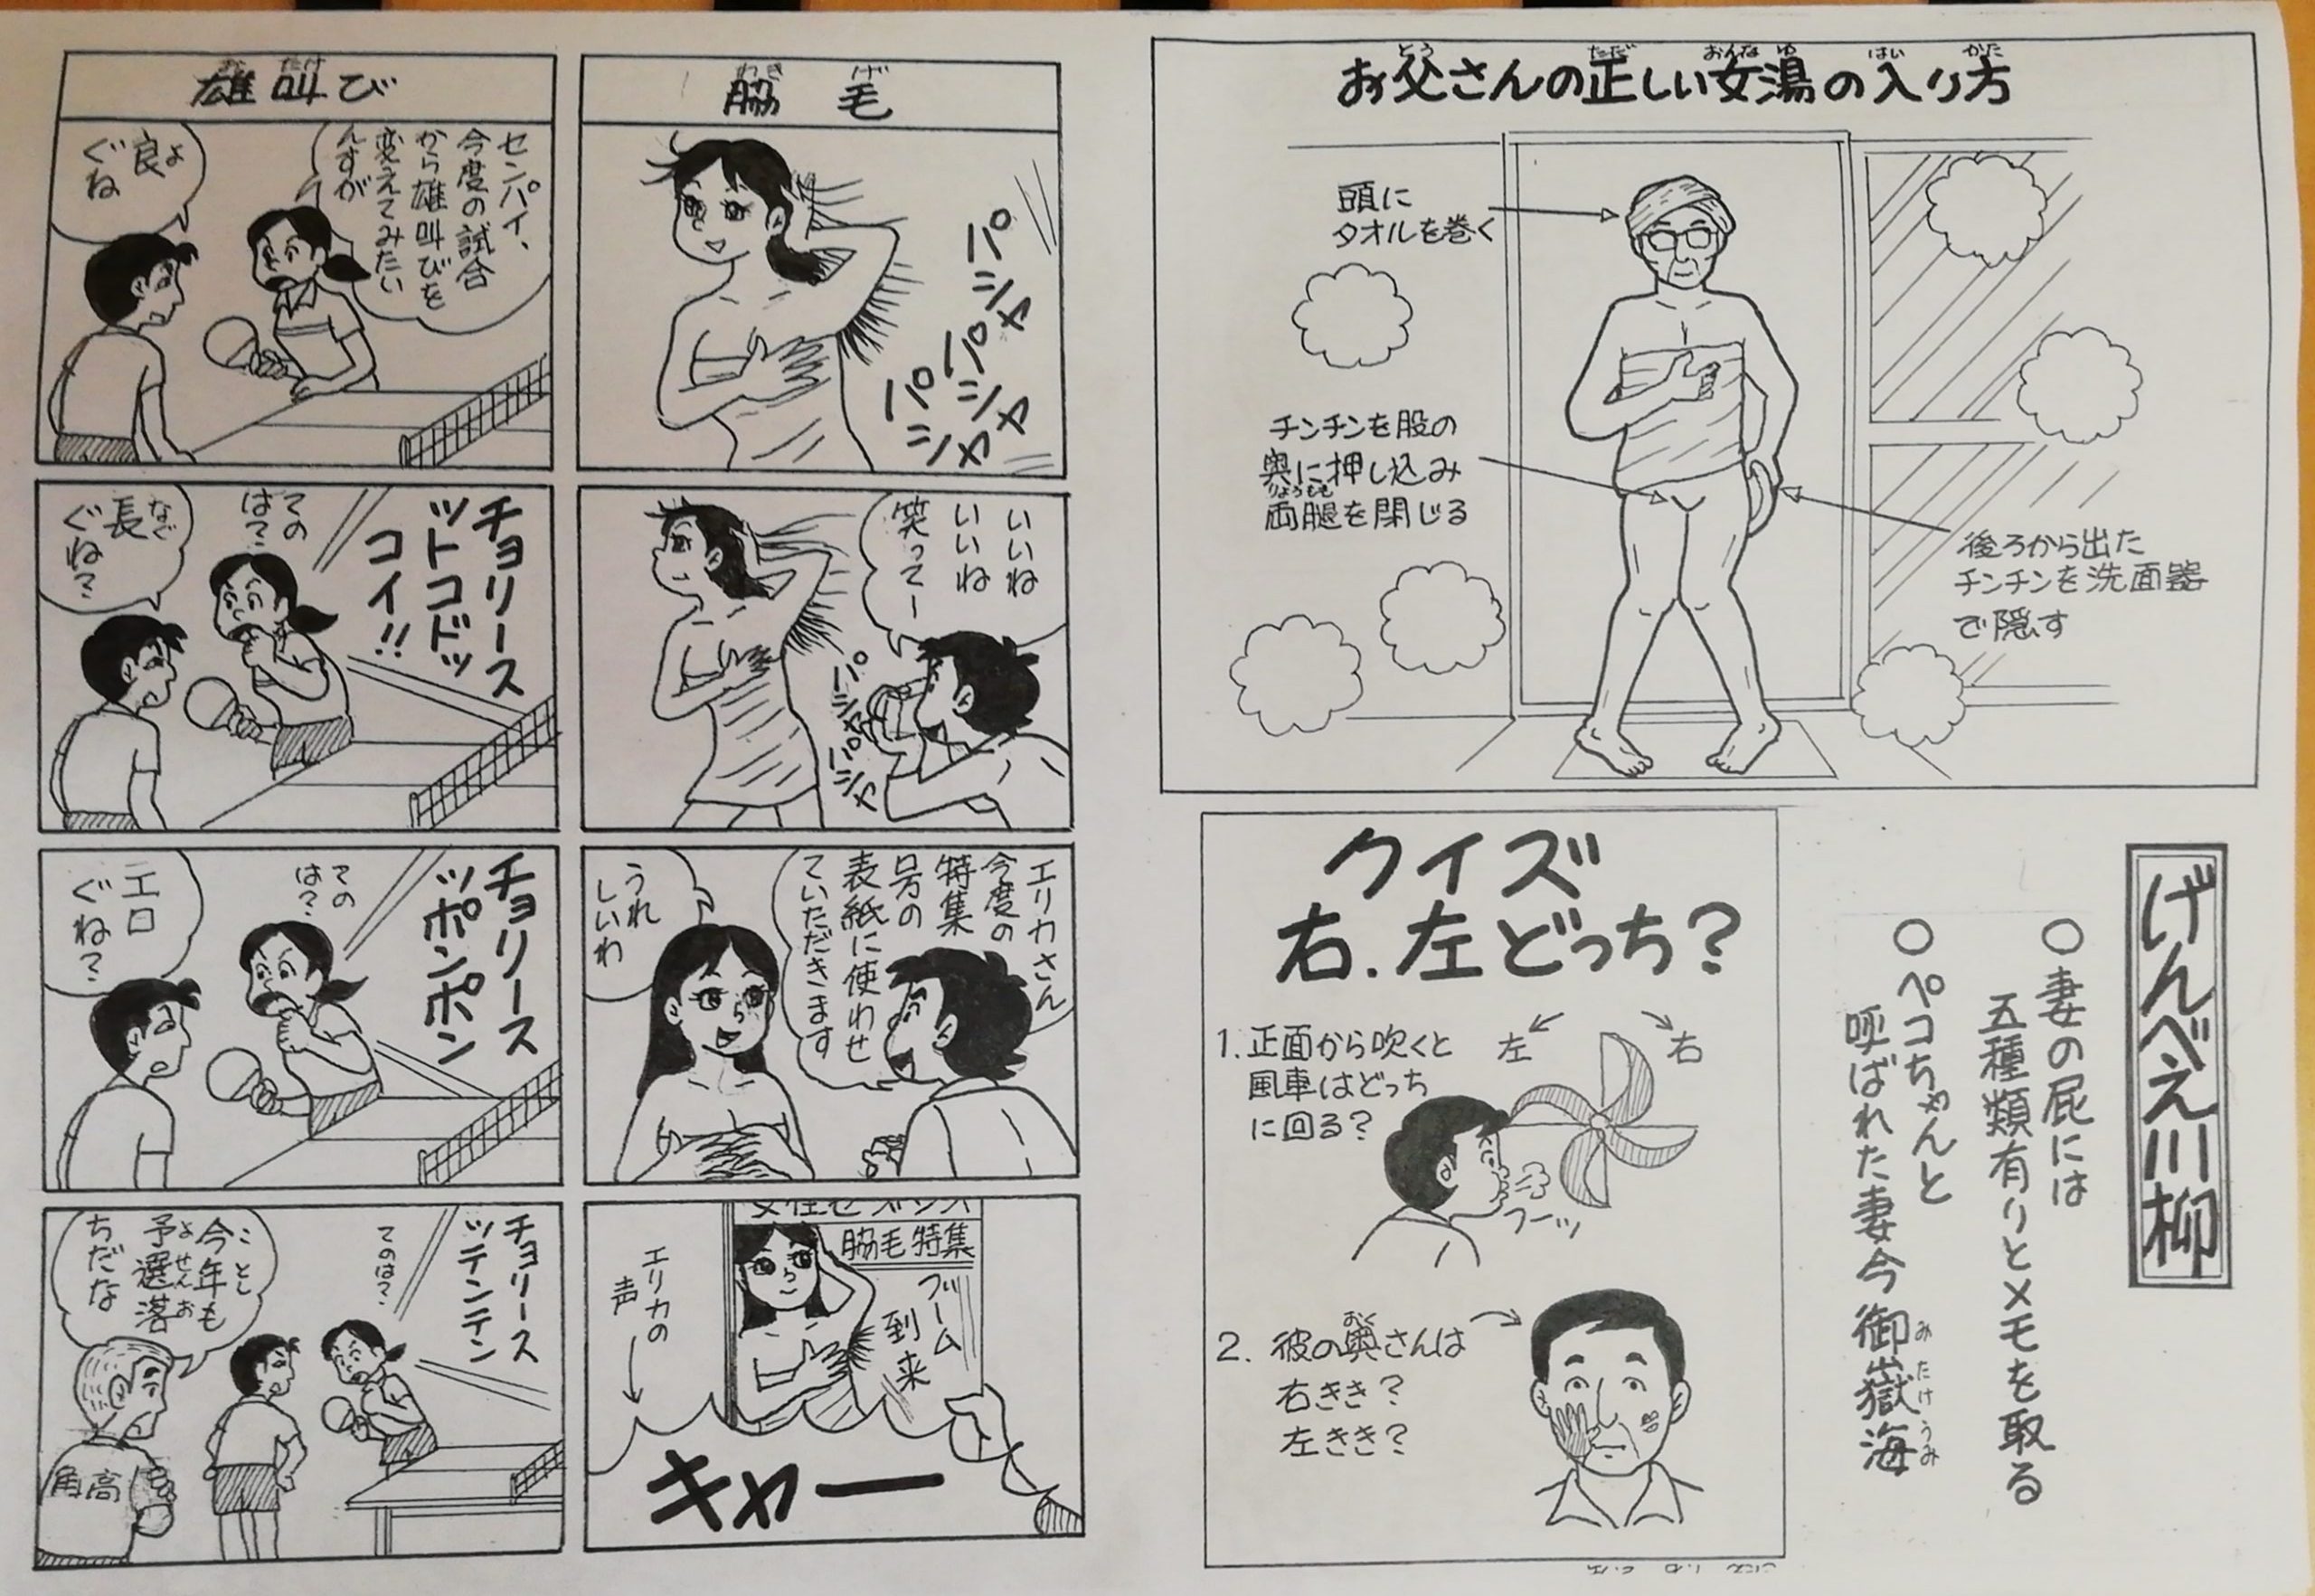 お父さんの正しい女湯の入り方
とう ただ おんなゆ はい かた
頭に
タオルを巻く
チンチンを股の
奥に押し込み
りょうもも
両腿を閉じる
後ろから出た
チンチンを洗面器
で隠す
げんべえ川柳
○妻の屁には
五種類有りとメモを取る
○ペコちゃんと
呼ばれた妻今御嶽海
みたけうみ
クイズ
右.左どっち?
1.正面から吹くと
風車はどっち
に回る?
左
右
フーッ
2. 彼の奥さんは
おく
右きき?
左きき?
脇毛
わき げ
パシャ
パシャ
パシャ
いいね
いいね
笑ってー
パシャ
パシャ
エリカさん
今度の
特集
号の
表紙に使わせ
ていただきます
うれ
しいわ
脇毛特集
ブーム
到来
エリカの
声
キャー
雄叫び
お たけ
センパイ、
今度の試合
から雄叫びを
変えてみたい
んすが
良
よ
ぐね
チョリース
ットコドッ
コイ!!
ての
は?
長
なご
ぐね?
チョリース
ッポンポン
ての
は?
エロ
ぐね?
チョリース
ッテンテン
てのは?
今年も
ことし
予選落
よせんお
ちだな
角高